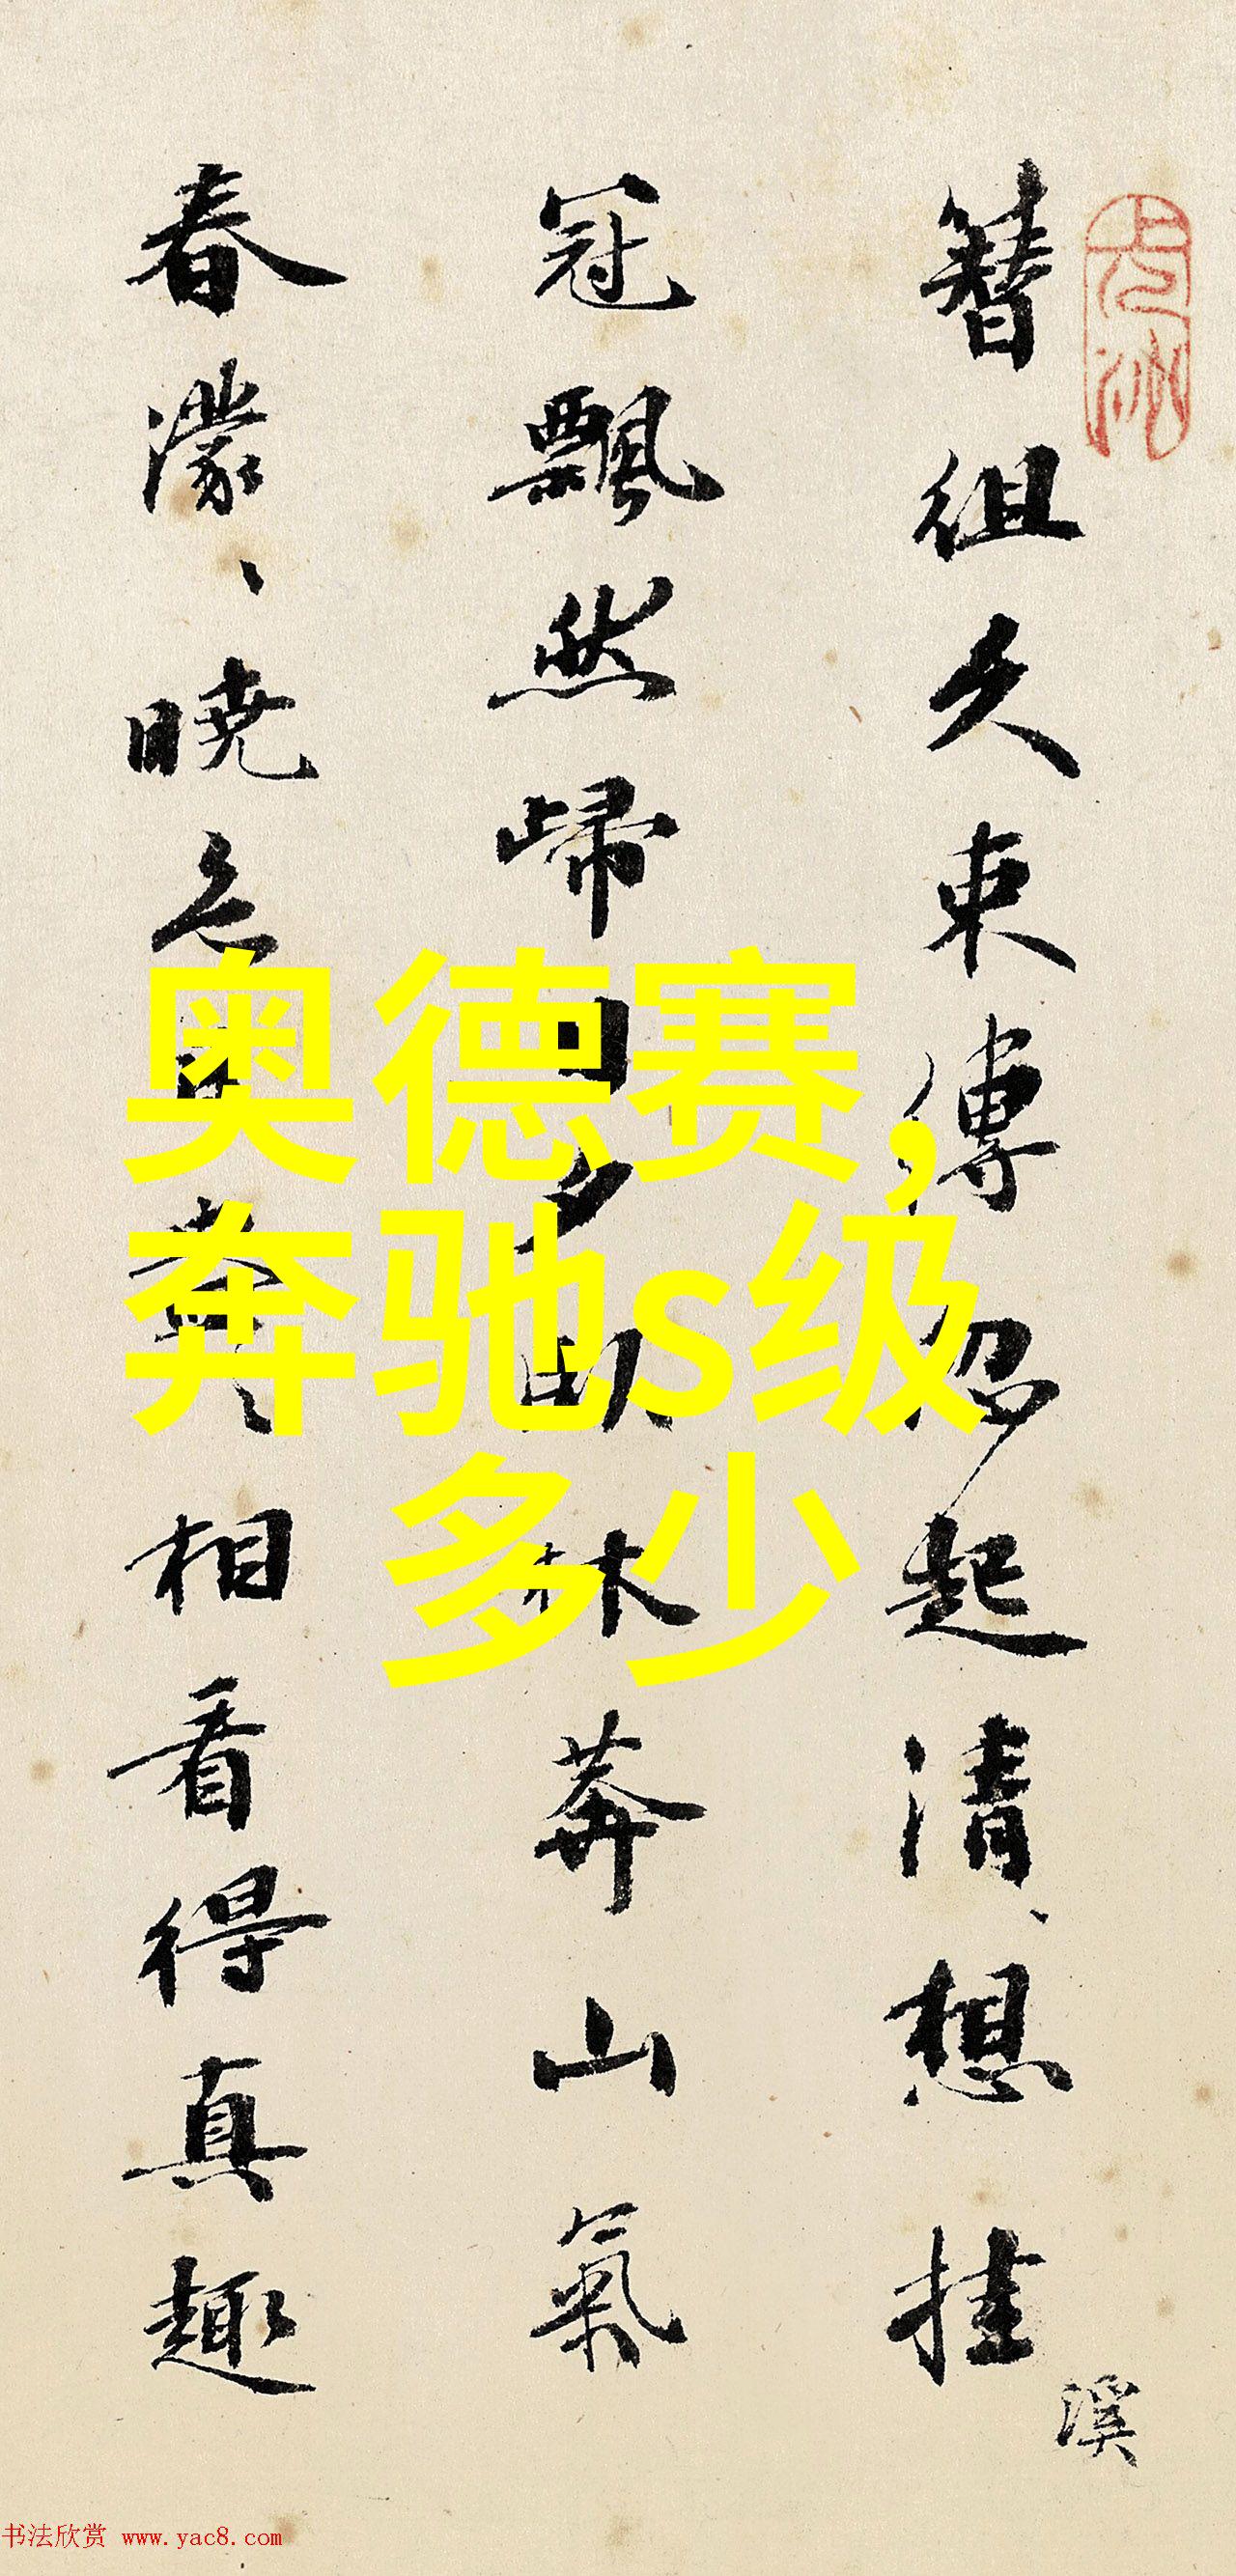 簪組久束縛忽起清想挂
溪
冠飄然歸日夕臥林莽山氣
春濛、曉色相看得真趣
奥德赛,
奔驰s级
多少
书法欣赏 www.yac8.com